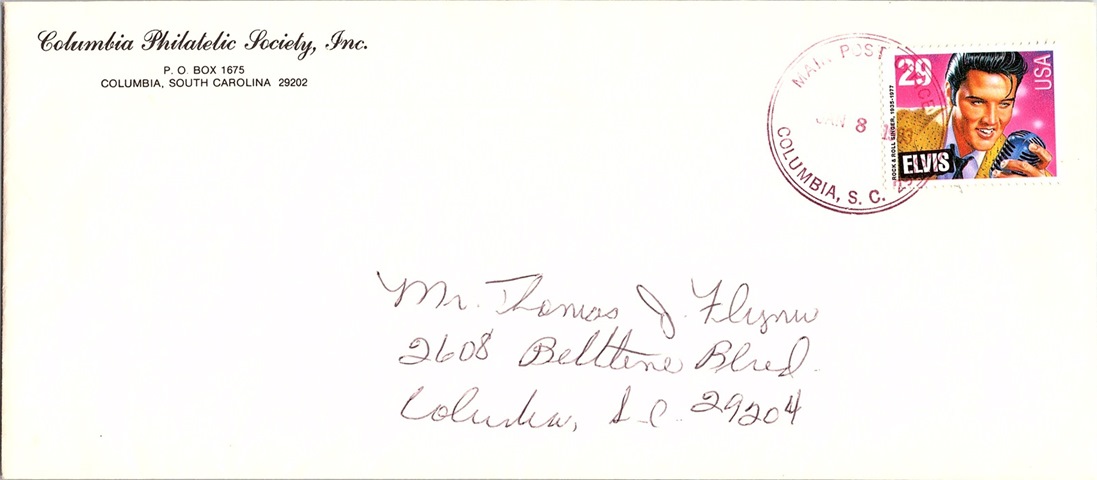 Columbia Philatelic Society, Inc.
P. O. BOX 1675
COLUMBIA, SOUTH CAROLINA 29202
MAIN POST OFFICE
JAN 8
COLUMBIA, S. C.
29
USA
ROCK & ROLL SINGER, 1935-1977
ELVIS
Mr. Thomas J. Flynn
2608 Beltline Blvd.
Columbia, S.C. 29204